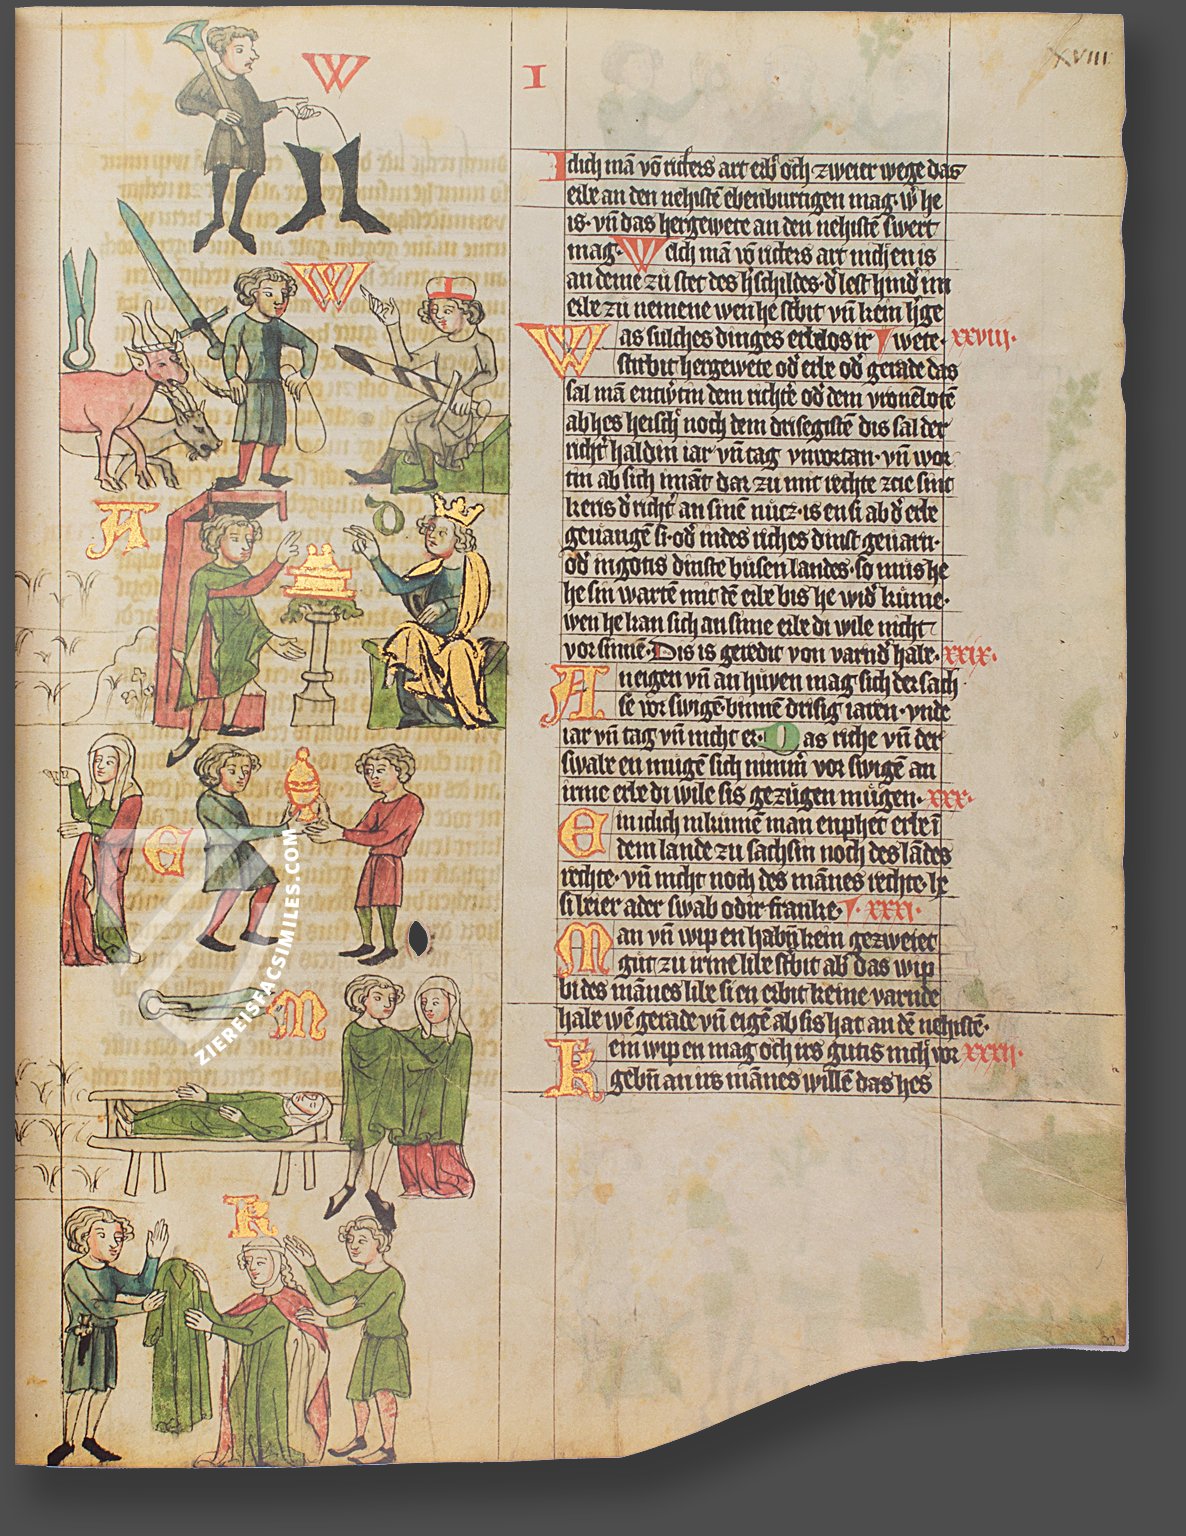 XVIII
I
W
Iclich mā vō rittˢs art erbˀt och zweier wege das
erbe an den nehistē ebenburtigen mag· wˀ he
is· vn̄ das hergewete an den nehistē swert
mag· Welch mā vō ritters art nicht en is
an deme zu stet des hˀschildes· dˀ lest hindˀ im
erbe zu nemene wen he stˀbit vn̄ kein hˀge
Was sulches dinges erbelos ir wete· xxviii·
stirbit hergewete odˀ erbe odˀ gerade das
sal mā entwˀtin dem richtˀe odˀ dem vronēbotē
ab hes heischˀ noch dem drisegistē dis sal der
richtˀ haldin iar vn̄ tag vnvortan· vn̄ wor
tin ab sich imāt dar zu mit rechte zcie sint
keris dˀ richtˀ an sinē nucz· is en si ab dˀ erbe
gevangē si· odˀ indes riches dinst gevarn·
odˀ in gotis dinste busen landes· so mus he
he sin wartē mit dē erbe bis he widˀ kume·
wen he kan sich an sime erbe di wile nicht
vor sumē· Dis is geredit von varndˀ habe· xxix·
An eigen vn̄ an huven mag sich der sach
se vor swigē binnē drisig iaren· vnde
iar vn̄ tag vn̄ nicht er· Das riche vn̄ der
swabe en mugē sich nimmˀ vor swigē an
irme erbe di wile sis gezugen mugen· xxx·
Ein iclich inkumē man enphet erbe ī
dem lande zu sachsin noch des lādes
rechte· vn̄ nicht noch des mānes rechte· hˀ
si beier ader swab odir franke· xxxi·
Man vn̄ wip en habn̄ kein gezweiet
gut zu irme libe stˀbit abˀ das wip
bi des mānes libe si en erbit keine varnde
habe wē gerade vn̄ eigē ab sis hat an dē nehistē·
Kein wip en mag och irs gutis nicht vor xxxii·
gebn̄ an irs mānes willē das hes
W
A
D
E
M
K
ZIEREISFACSIMILES.COM